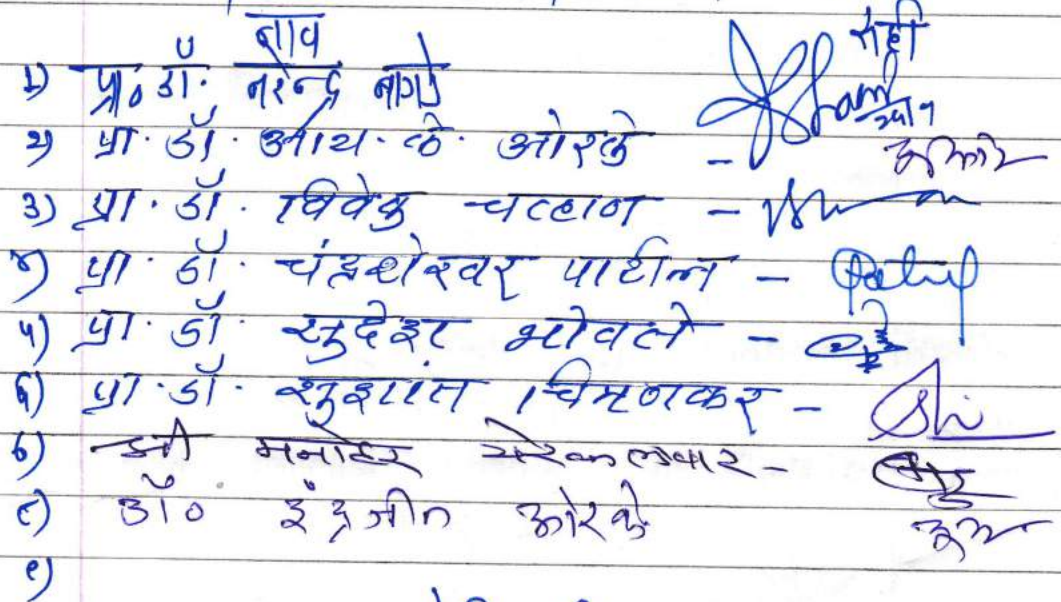 नाव सही
१) प्रा. डॉ. नरेन्द्र बागडे
२) प्रा. डॉ. आय. के. ओरके -
३) प्रा. डॉ. विवेक चव्हाण -
४) प्रा. डॉ. चंद्रशेखर पाटील - Patil
५) प्रा. डॉ. सुदेश भोवते -
६) प्रा. डॉ. सुशांत चिमणकर -
७) श्री मनोहर येरकलवार -
८) डॉ० इंद्रजीत ओरके
९)